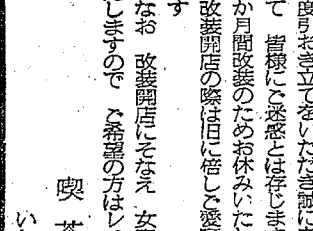 度引お引き立てをいただき誠に
て 皆様にご迷惑とは存じま
か月間改装のためお休みいた
改装開店の際は旧に倍しご愛
す
なお 改装開店にそなえ 女
しますので ご希望の方はレ
喫 茶
い